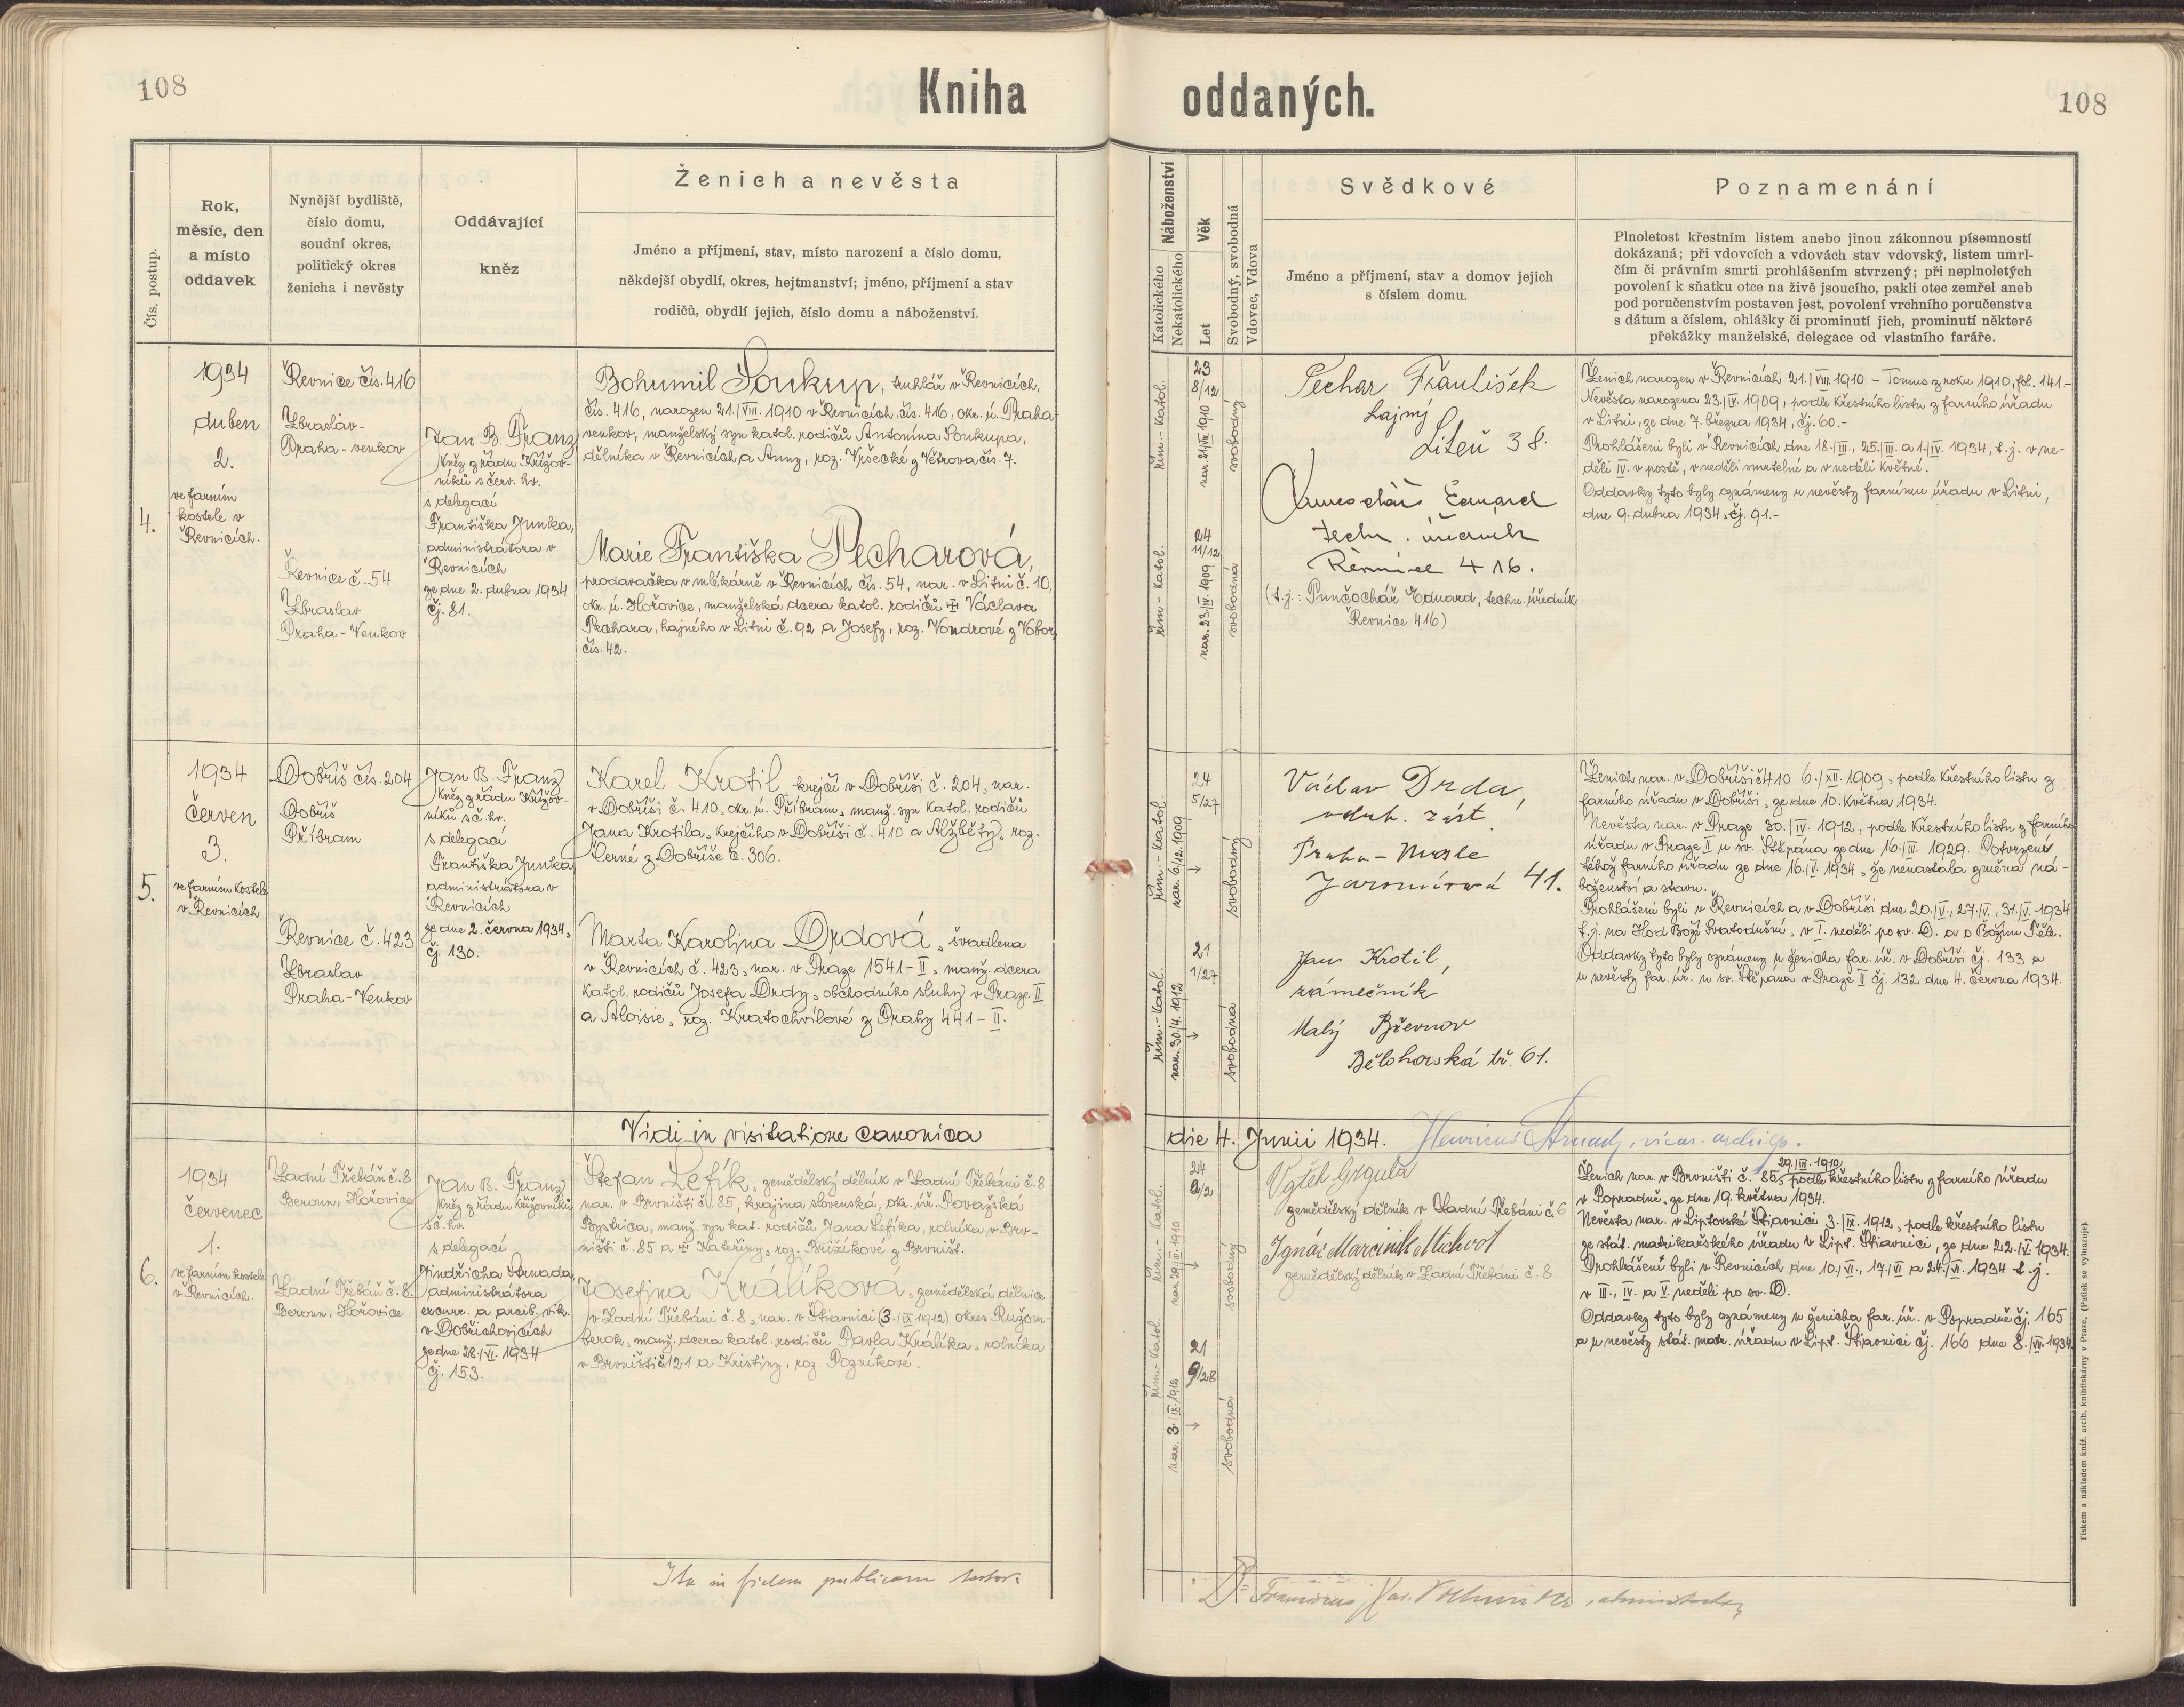 108
Kniha
oddaných.
108
Čís. postup.
Rok,
měsíc, den
a místo
oddavek
Nynější bydliště,
číslo domu,
soudní okres,
politický okres
ženicha i nevěsty
Oddávající
kněz
Ženich a nevěsta
Jméno a příjmení, stav, místo narození a číslo domu,
někdejší obydlí, okres, hejtmanství; jméno, příjmení a stav
rodičů, obydlí jejich, číslo domu a náboženství.
Náboženství
Katolického
Nekatolického
Věk
Let
Svobodný, svobodná
Vdovec, Vdova
Svědkové
Jméno a příjmení, stav a domov jejich
s číslem domu.
Poznamenání
Plnoletost křestním listem anebo jinou zákonnou písemností
dokázaná; při vdovcích a vdovách stav vdovský, listem umrl-
čím či právním smrti prohlášením stvrzený; při neplnoletých
povolení k sňatku otce na živě jsoucího, pakli otec zemřel aneb
pod poručenstvím postaven jest, povolení vrchního poručenstva
s dátum a číslem, ohlášky či prominutí jich, prominutí některé
překážky manželské, delegace od vlastního faráře.
4.
1934
duben
2.
ve farním
kostele v
Řevnicích.
Řevnice čís. 416
Zbraslav-
Praha-venkov
Řevnice č. 54
Zbraslav
Praha-Venkov
Jan B. Franz
kněz z řádu Křižov-
níků s červ. hv.
s delegací
Františka Junka,
administrátora v
Řevnicích
ze dne 2. dubna 1934
čj. 81.
Bohumil Soukup, truhlář v Řevnicích,
čís. 416, narozen 21./VIII. 1910 v Řevnicích čís. 416, okr. ú. Praha-
venkov, manželský syn katol. rodičů Antonína Soukupa,
dělníka v Řevnicích a Anny, roz. Vršecké z Větrova čís. 7.
Marie Františka Pecharová,
prodavačka v mlékárně v Řevnicích čís. 54, nar. v Litni č. 10,
okr. ú. Hořovice, manželská dcera katol. rodičů ✝ Václava
Pechara, hajného v Litni č. 92 a Josefy, roz. Vondrové z Vobor,
čís. 42.
řím.-katol.
23
8/12
nar. 21/VIII 1910
svobodný
řím-katol.
24
11/12
nar. 23./IV. 1909
svobodná
Pechar František
hajný
Liteň 38.
Eduard
techn. úředník
Řevnice 416.
(t.j.: Punčochář Eduard, techn. úředník
Řevnice 416)
Ženich narozen v Řevnicích 21./VIII. 1910 - Tomus z roku 1910, fol. 141-
Nevěsta narozena 23./IV. 1909, podle křestního listu z farního úřadu
v Litni, ze dne 7. března 1934, čj. 60.-
Prohlášeni byli v Řevnicích dne 18./III., 25./III. a 1./IV. 1934, t.j. v ne-
děli IV. v postě, v neděli smrtelné a v neděli Květné.
Oddavky tyto byly oznámeny u nevěsty farnímu úřadu v Litni,
dne 9. dubna 1934, čj. 91.-
5.
1934
červen
3.
ve farním kostele
v Řevnicích
Dobříš čís. 204
Dobříš
Příbram
Řevnice č. 423
Zbraslav
Praha-Venkov
Jan B. Franz
kněz z řádu Křižov-
níků s č. hv.
s delegací
Františka Junka,
administrátora v
Řevnicích
ze dne 2. června 1934,
čj. 130.
Karel Krotil, krejčí v Dobříši č. 204, nar.
v Dobříši č. 410, okr. ú. Příbram, manž. syn katol. rodičů
Jana Krotila, krejčího v Dobříši č. 410 a Alžběty, roz.
Černé z Dobříše č. 306.
Marta Karolina Drdová, švadlena
v Řevnicích č. 423, nar. v Praze 1541-II, manž. dcera
katol. rodičů Josefa Drdy, obchodního sluhy v Praze II
a Aloisie, roz. Kratochvílové z Prahy 441-II.
řím.-katol.
nar. 6/12. 1909
24
5/27
svobodný
řím.-katol.
nar. 30./4. 1912
21
1/27
svobodná
Václav Drda,
Praha-Nusle
Jaromírova 41.
Jan Krotil,
zámečník
Malý Břevnov
Bělohorská tř. 61.
Ženich nar. v Dobříši č 410 6./XII. 1909, podle křestního listu z
farního úřadu v Dobříši, ze dne 10. května 1934.
Nevěsta nar. v Praze 30./IV. 1912, podle křestního listu z farního
úřadu v Praze II u sv. Štěpána ze dne 16./III. 1929. Potvrzení
téhož farního úřadu ze dne 16./V. 1934, že nenastala změna ná-
boženství a stavu.
Prohlášeni byli v Řevnicích a v Dobříši dne 20./V., 27./V., 31./V. 1934
t.j. na Hod Boží Svatodušní, v I. neděli po sv. D. a o Božím Těle.
Oddavky tyto byly oznámeny u ženicha far. úř. v Dobříši čj. 133 a
u nevěsty far. úř. u sv. Štěpána v Praze II čj. 132 dne 4. června 1934.
Vidi in visitatione canonica
die 4. Junii 1934. Henricus Strnad, vicar. archiep.
6.
1934
červenec
1.
ve farním kostele
v Řevnicích.
Zadní Třebáň č. 8
Beroun, Hořovice
Zadní Třebáň č. 8.
Beroun, Hořovice
Jan B. Franz
kněz z řádu Křižovníků
s č. hv.
s delegací
Jindřicha Strnada,
administrátora
excurr. a arcib. vik.
v Dobřichovicích
ze dne 28./VI. 1934
čj. 153.
Štefan Lefík, zemědělský dělník v Zadní Třebáni č. 8
nar. v Brvništi č. 85, krajina slovenská, okr. úř. Považská
Bystrica, manž. syn kat. rodičů Jana Lefíka, rolníka v Brv-
ništi č. 85 a ✝ Kateřiny, roz. Brižíkové z Brvništ.
Josefina Králíková, zemědělská dělnice
v Zadní Třebáni č. 8, nar. v Štiavnici (3./IX 1912) okres Ružom-
berok, manž. dcera katol. rodičů Pavla Králíka, rolníka
v Brvništi č 121 a Kristiny, roz. Pozníkové.
řím.-katol.
nar. 29/III-1910
24
svobodný
řím.-katol.
nar. 3./IX. 1912
21
9/28
svobodná
Grgula
zemědělský dělník v Zadní Třebáni č 6
Ignác
zemědělský dělník v Zadní Třebáni č. 8
29./III. 1910,
Ženich nar. v Brvništi č. 85, podle křestního listu z farního úřadu
v Popradně, ze dne 19. května 1934.
Nevěsta nar. v Liptovské Štiavnici 3./IX. 1912, podle křestního listu
ze stát. matrikařského úřadu v Lipt. Štiavnici, ze dne 22./V. 1934.
Prohlášeni byli v Řevnicích dne 10./VI., 17./VI a 24./VI. 1934 t.j.
v III., IV. a V. neděli po sv. D.
Oddavky tyto byly oznámeny u ženicha far. úř. v Popradně čj. 165
a u nevěsty stát. matr. úřadu v Lipt. Štiavnici čj. 166 dne 8./VII. 1934.
Ita in fidem publicam testor:
Franciscus
Tiskem a nákladem kníž. arcib. knihtiskárny v Praze. (Patisk se vyhrazuje).